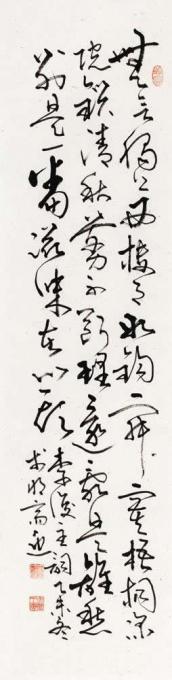 無言獨上西樓月如鉤寂寞梧桐深
院鎖清秋剪不斷理還亂是離愁
別是一番滋味在心頭
李後主詞乙未冬